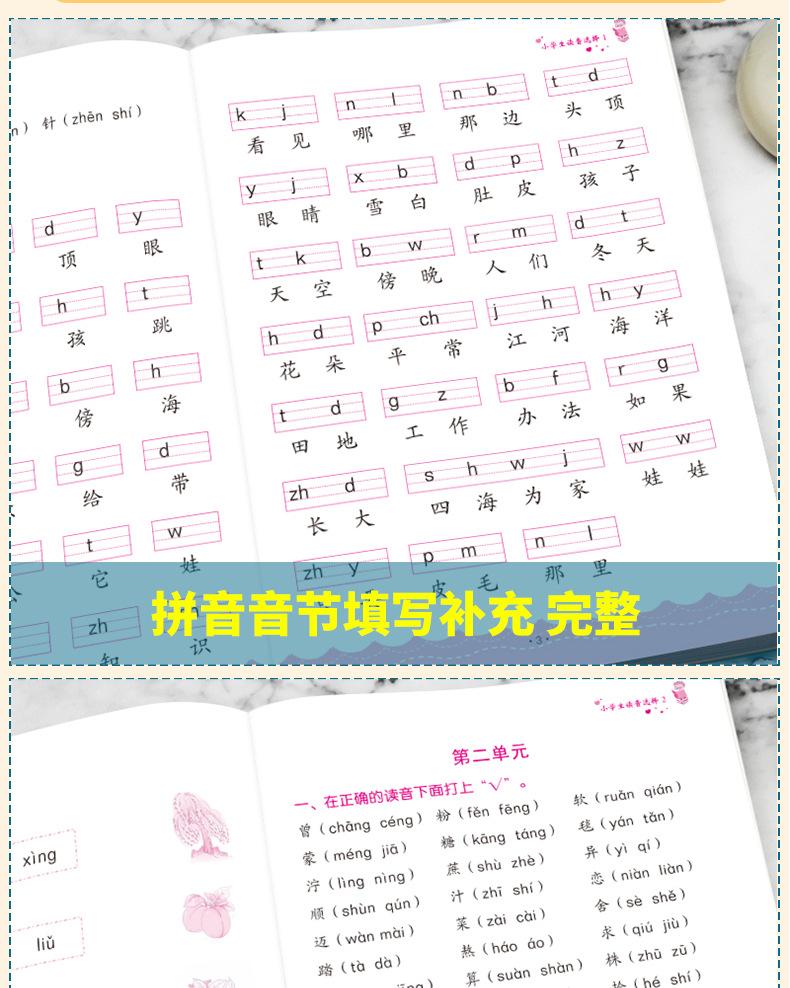 小学生读音选择1
针（zhēn shí）
k j
n l
n b
t d
看 见
哪 里
那 边
头 顶
y j
x b
d p
h z
眼 睛
雪 白
肚 皮
孩 子
t k
b w
r m
d t
天 空
傍 晚
人 们
冬 天
h d
p ch
j h
h y
花 朵
平 常
江 河
海 洋
t d
g z
b f
r g
田 地
工 作
办 法
如 果
zh d
s h w j
w w
长 大
四 海 为 家
娃 娃
zh y
p m
n l
皮 毛
那 里
d
y
顶
眼
h
t
孩
跳
b
h
傍
海
g
d
给
带
t
w
它
娃
zh
知
识
拼音音节填写补充 完整
3
小学生读音选择2
第二单元
一、在正确的读音下面打上“√”。
曾（chāng céng） 粉（fěn fēng） 软（ruǎn qián）
蒙（méng jiā） 糖（kāng táng） 毯（yán tǎn）
泞（lìng nìng） 蔗（shù zhè） 异（yì qí）
顺（shùn qún） 汁（zhī shí） 恋（niàn liàn）
迈（wàn mài） 菜（zài cài） 舍（sè shě）
踏（tà dà） 熬（háo áo） 求（qiú jiù）
算（suàn shàn） 株（zhū zū）
（hé shí）
xìng
liǔ